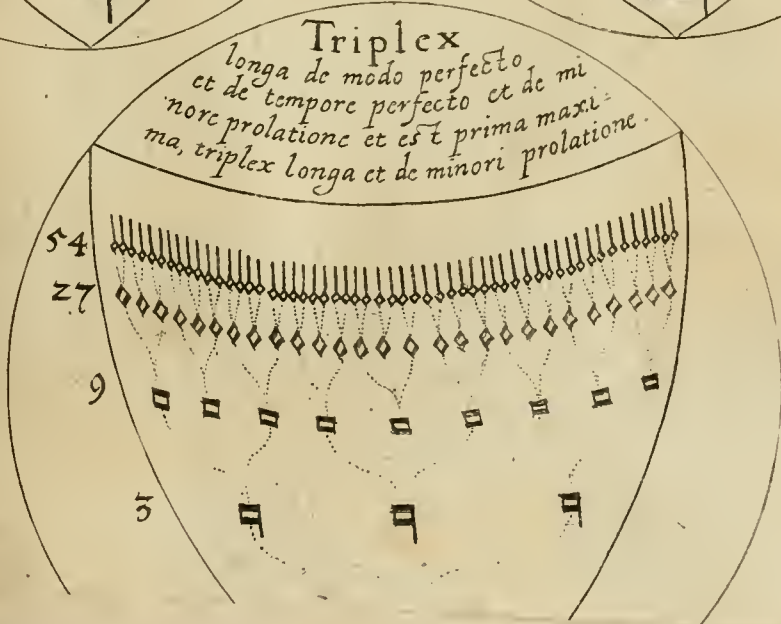 Triplex
longa de modo perfecto
et de tempore perfecto et de mi
nore prolatione et est prima maxi=
ma, triplex longa et de minori prolatione.
54
27
9
3